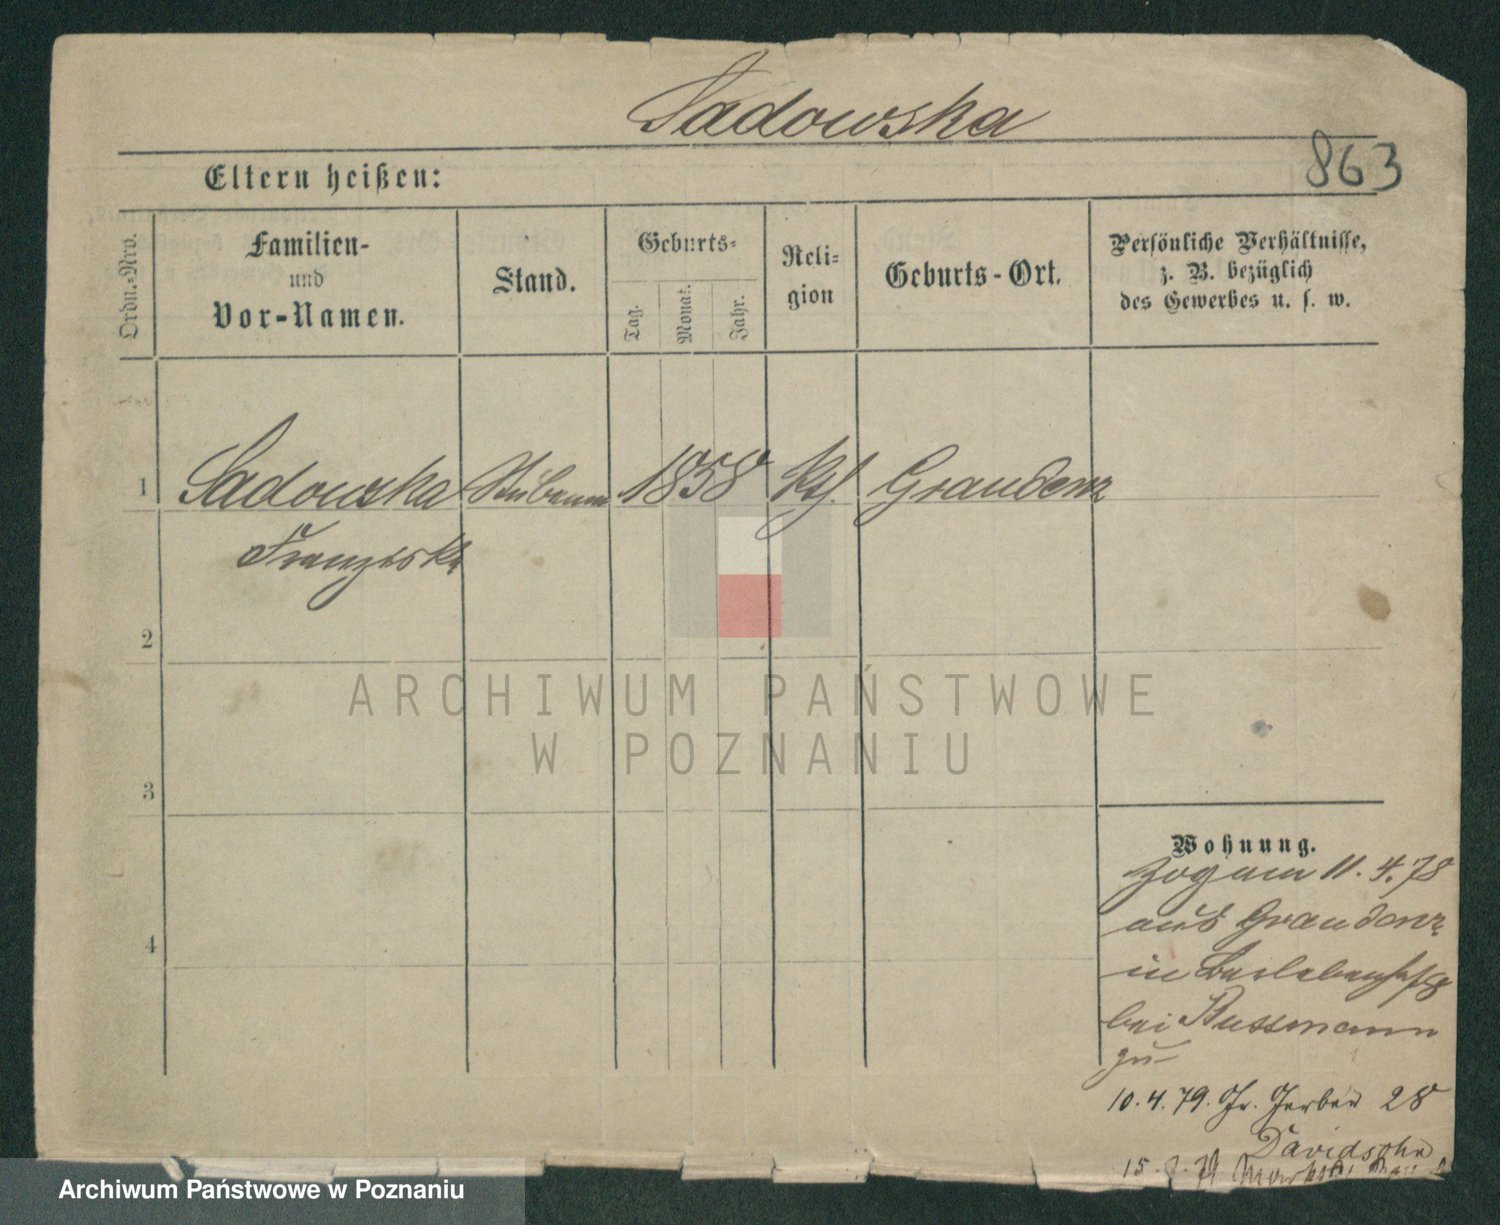 Sadowska
863
Eltern heißen:
Ordn.-Nro.
Familien-
und
Vor-Namen.
Stand.
Geburts-
Tag.
Monat.
Jahr.
Reli-
gion
Geburts-Ort.
Persönliche Verhältnisse,
z. B. bezüglich
des Gewerbes u. s. w.
1
Sadowska
1858
Kth.
Graudenz
Franziska
2
3
4
ARCHIWUM PAŃSTWOWE
W POZNANIU
Wohnung.
Zog am 11. 4. 78
aus Graudenz
in
bei Bussmann
zu
10. 4. 79. Gr. Gerber 28
Davidsohn
Archiwum Państwowe w Poznaniu